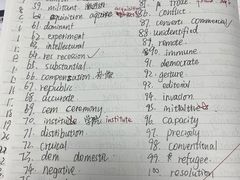 59. militant
60. acquisition acquire acquisition
61. dominant
62. experiment
63. intellectual
64. rec recession
65. substantial
66. compensation
67. republic
68. accurate
69. cem ceremony
70. institute
71. distribution
72. crucial
73. dem domestic
74. negative
86. conflict
87. convert commercial/
88. unidentified
89. remote
90. immune
91. democrate
92. gesture
93. editorial
94. invasion
95.
96. capacity
97. precisely
98. conventional
99. refugee
100. resolution